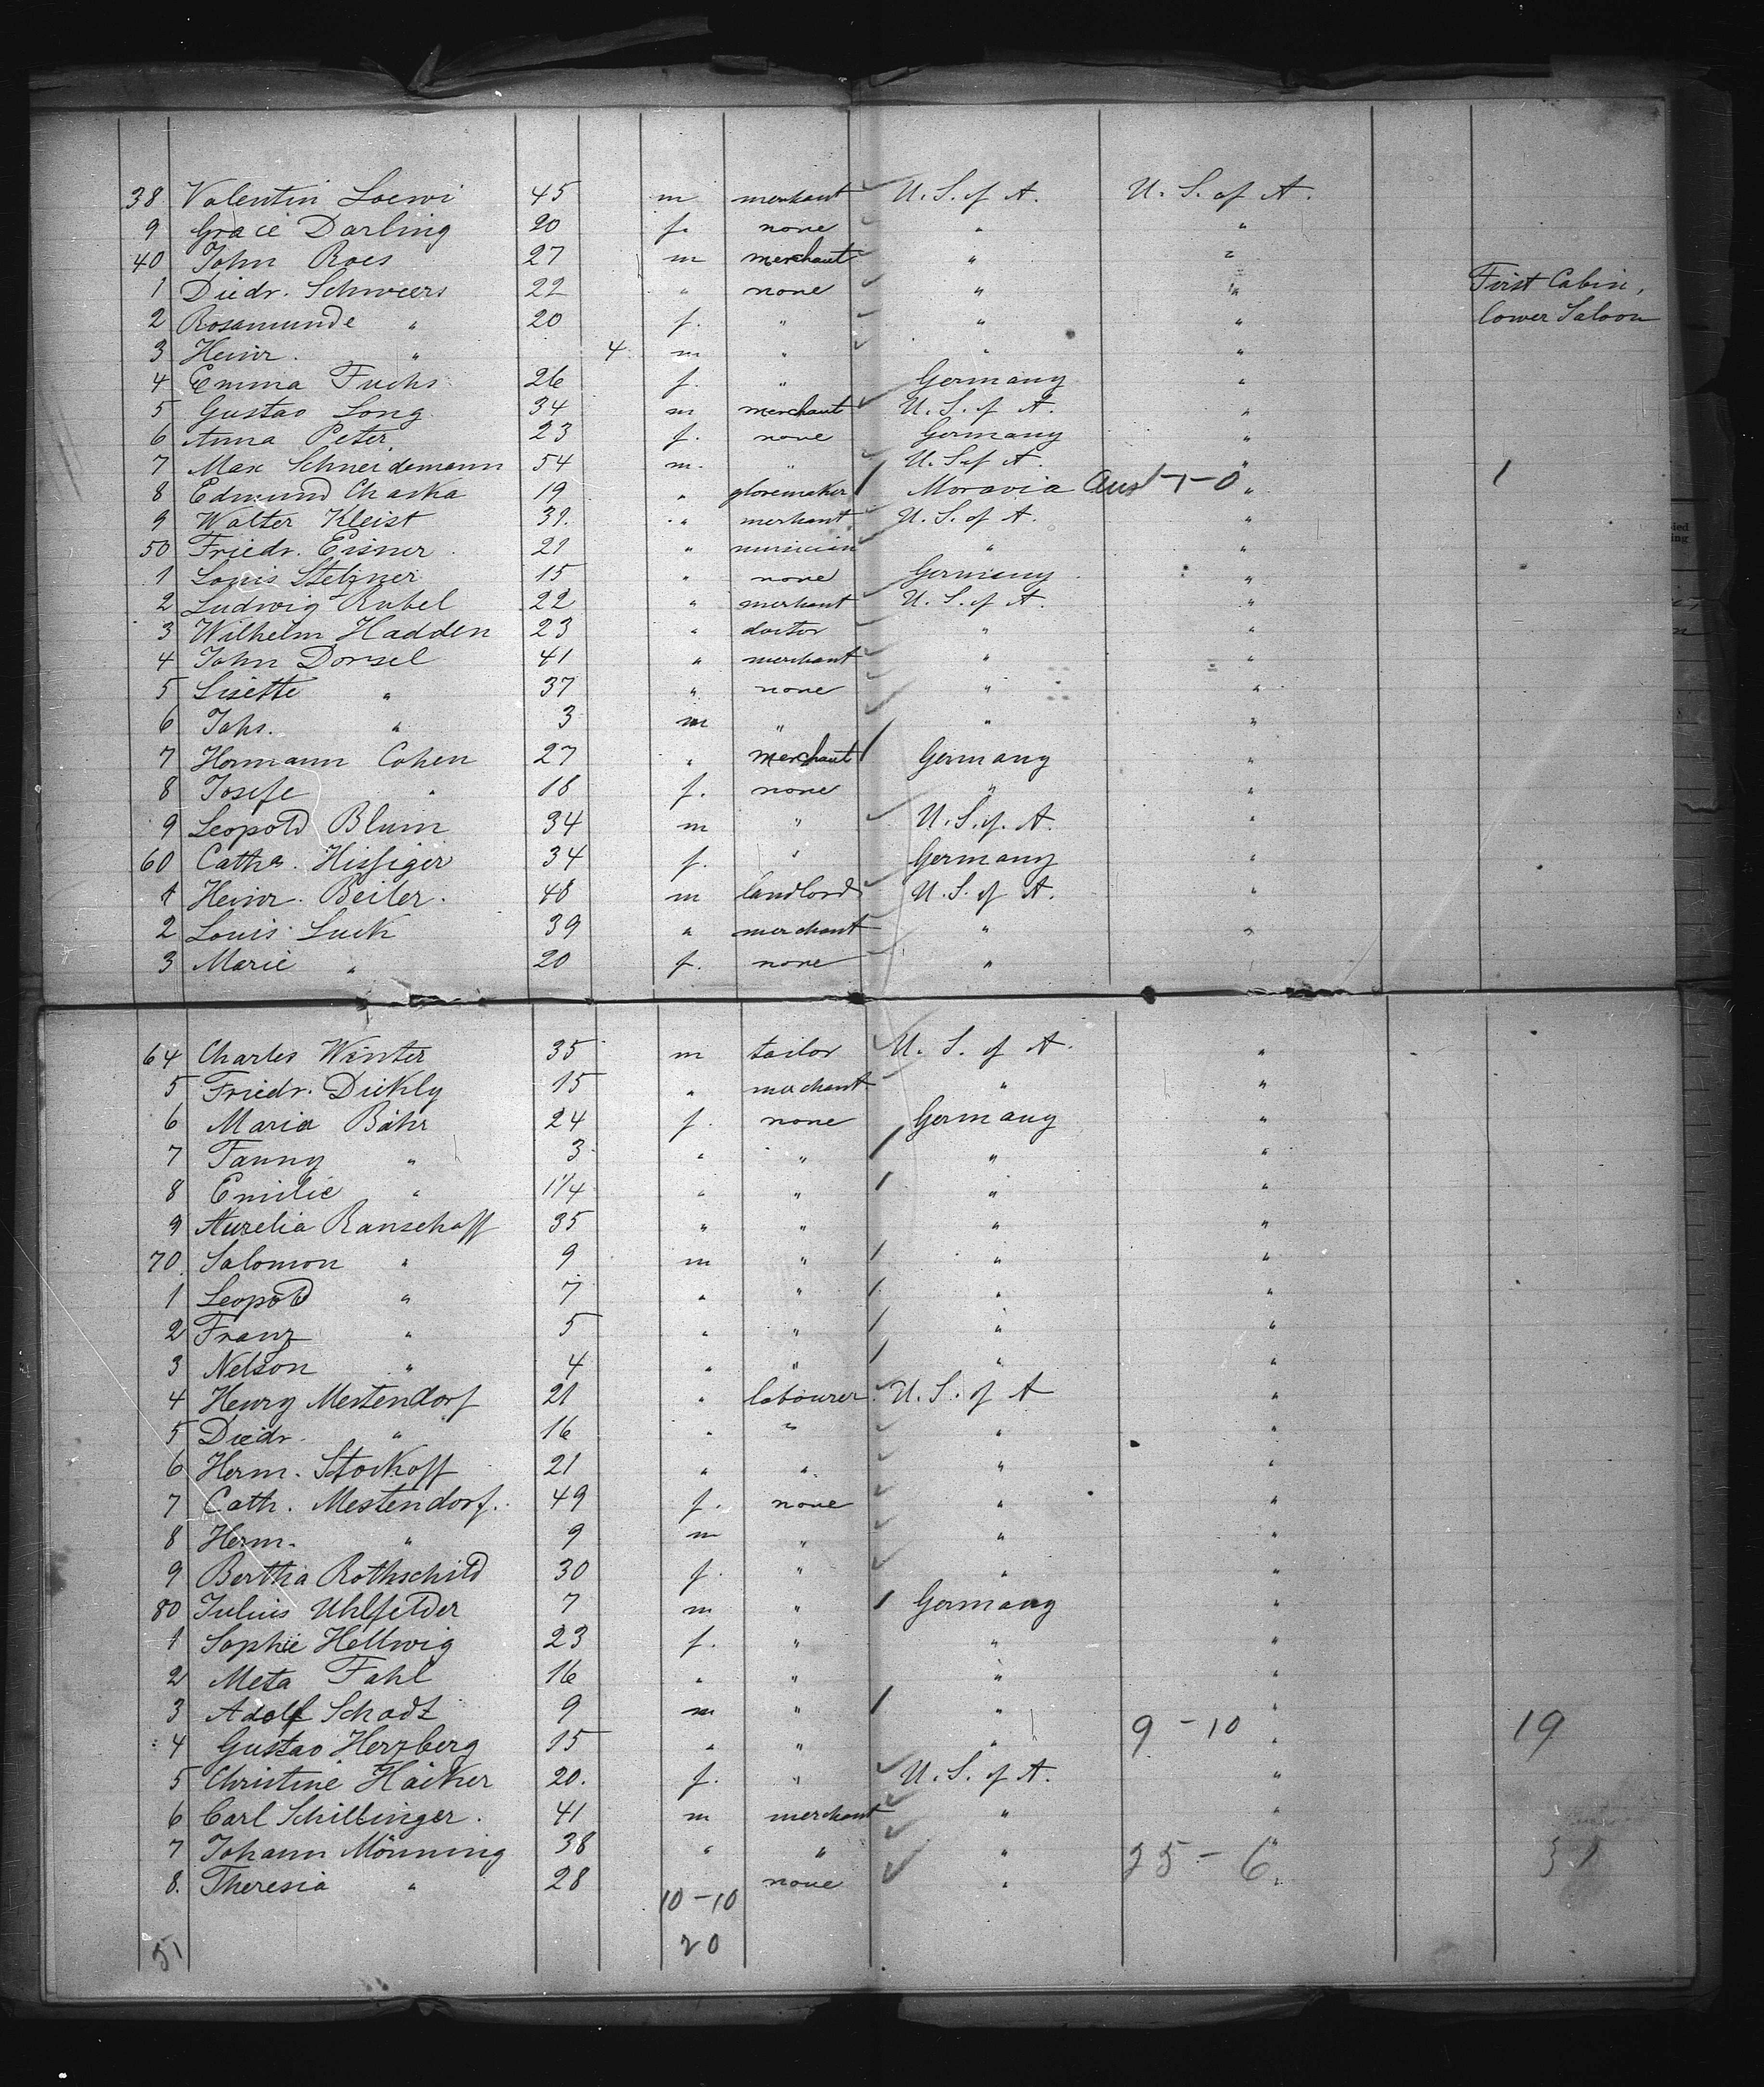 38 Valentin Loewi 45 m merchant U. S. of A. U. S. of A.
9 Gracie Darling 20 f. none " "
40 John Roes 27 m merchant " "
1 Diedr. Schweers 22 " none " " First Cabin,
2 Rosamunde " 20 f. " " " lower Saloon
3 Heinr. " 4 m " " "
4 Emma Fuchs 26 f. " Germany "
5 Gustav Long 34 m merchant U. S. of A. "
6 Anna Peter 23 f. none Germany "
7 Max Schneidemann 54 m. " U. S. of A. "
8 Edmund Chaska 19 " glovemaker / Moravia Aus 1-0 " 1
9 Walter Kleist 39. " merchant U. S. of A. "
50 Friedr. Eisner 21 " musician " "
1 Louis Stelzner 15 " none Germany "
2 Ludwig Rubel 22 " merchant U. S. of A. "
3 Wilhelm Hadden 23 " doctor " "
4 John Dorsel 41 " merchant " "
5 Lisette " 37 " none " "
6 Johs. " 3 m " " "
7 Hermann Cohen 27 " merchant / Germany "
8 Josefe " 18 f. none " "
9 Leopold Blum 34 m " U. S. of A. "
60 Catha. Hissiger 34 f. " Germany "
1 Heinr. Beiler. 48 m landlord U. S. of A. "
2 Louis Luck 39 " merchant " "
3 Marie " 20 f. none "
64 Charles Winter 35 m tailor U. S. of A. "
5 Friedr. Dickly 15 " merchant " "
6 Maria Bähr 24 f. none Germany "
7 Fanny " 3 " " / " "
8 Emilie " 1 1/4 " " / " "
9 Aurelia Ranschoff 35 " " " "
70 Salomon " 9 m " / " "
1 Leopold " 7 " " / " "
2 Franz " 5 " " / " "
3 Nelson " 4 " " / " "
4 Henry Mestendorf 21 " labourer U. S. of A "
5 Diedr. " 16 " " " "
6 Herm. Stockoff 21 " " " "
7 Cath. Mestendorf. 49 f. none " "
8 Herm. " 9 m " " "
9 Bertha Rothschild 30 f. " " "
80 Julius Uhlfelder 7 m " / Germany "
1 Sophie Hellwig 23 f. " " "
2 Meta Fahl 16 " " " "
3 Adolf Schadt 9 m " / " "
4 Gustav Herzberg 15 " " " 9-10 " 19
5 Christine Häcker 20. f. " U. S. of A. "
6 Carl Schillinger. 41 m merchant " "
7 Johann Mönning 38 " " " 25-6 " 31
8. Theresia " 28 none " "
10-10
51 20